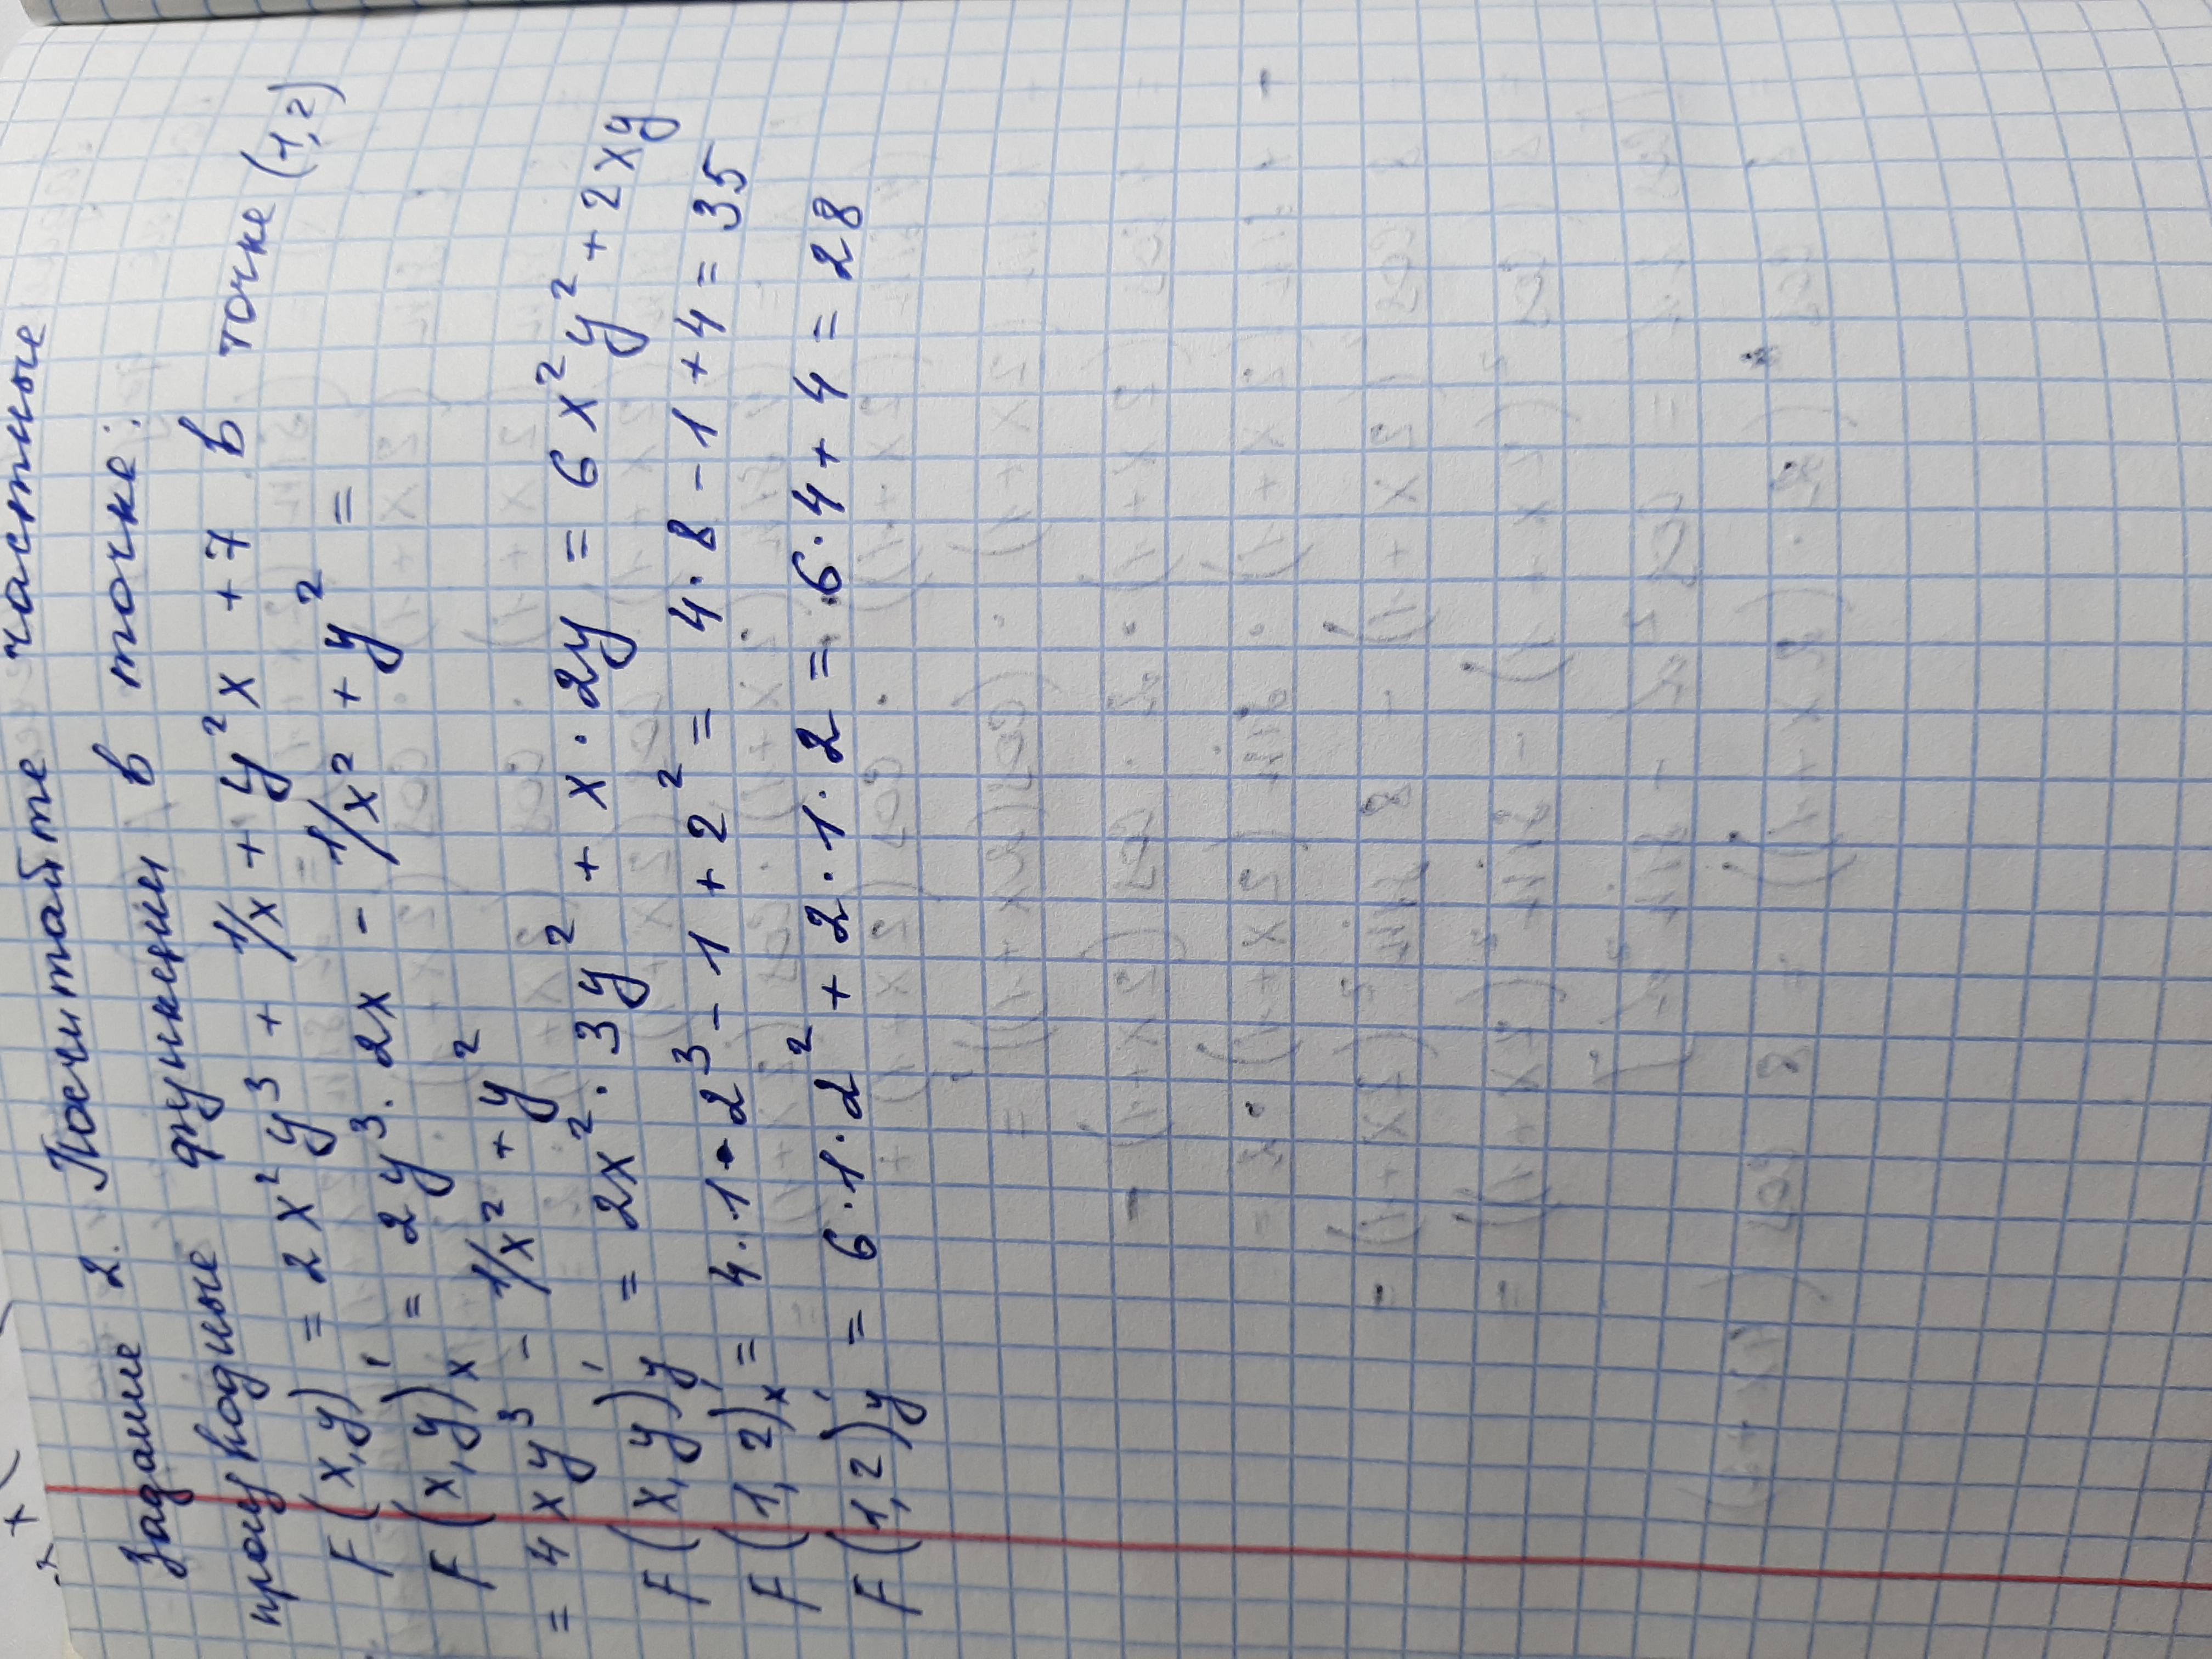 Задание 2. Посчитайте частные
производные функции в точке:
F(x,y) = 2x²y³ + 1/x + y²x + 7 в точке (1,2)
F(x,y)'ₓ = 2y³ · 2x - 1/x² + y² =
= 4xy³ - 1/x² + y²
F(x,y)'y = 2x² · 3y² + x · 2y = 6x²y² + 2xy
F(1,2)'ₓ = 4 · 1 · 2³ - 1 + 2² = 4 · 8 - 1 + 4 = 35
F(1,2)'y = 6 · 1 · 2² + 2 · 1 · 2 = 6 · 4 + 4 = 28